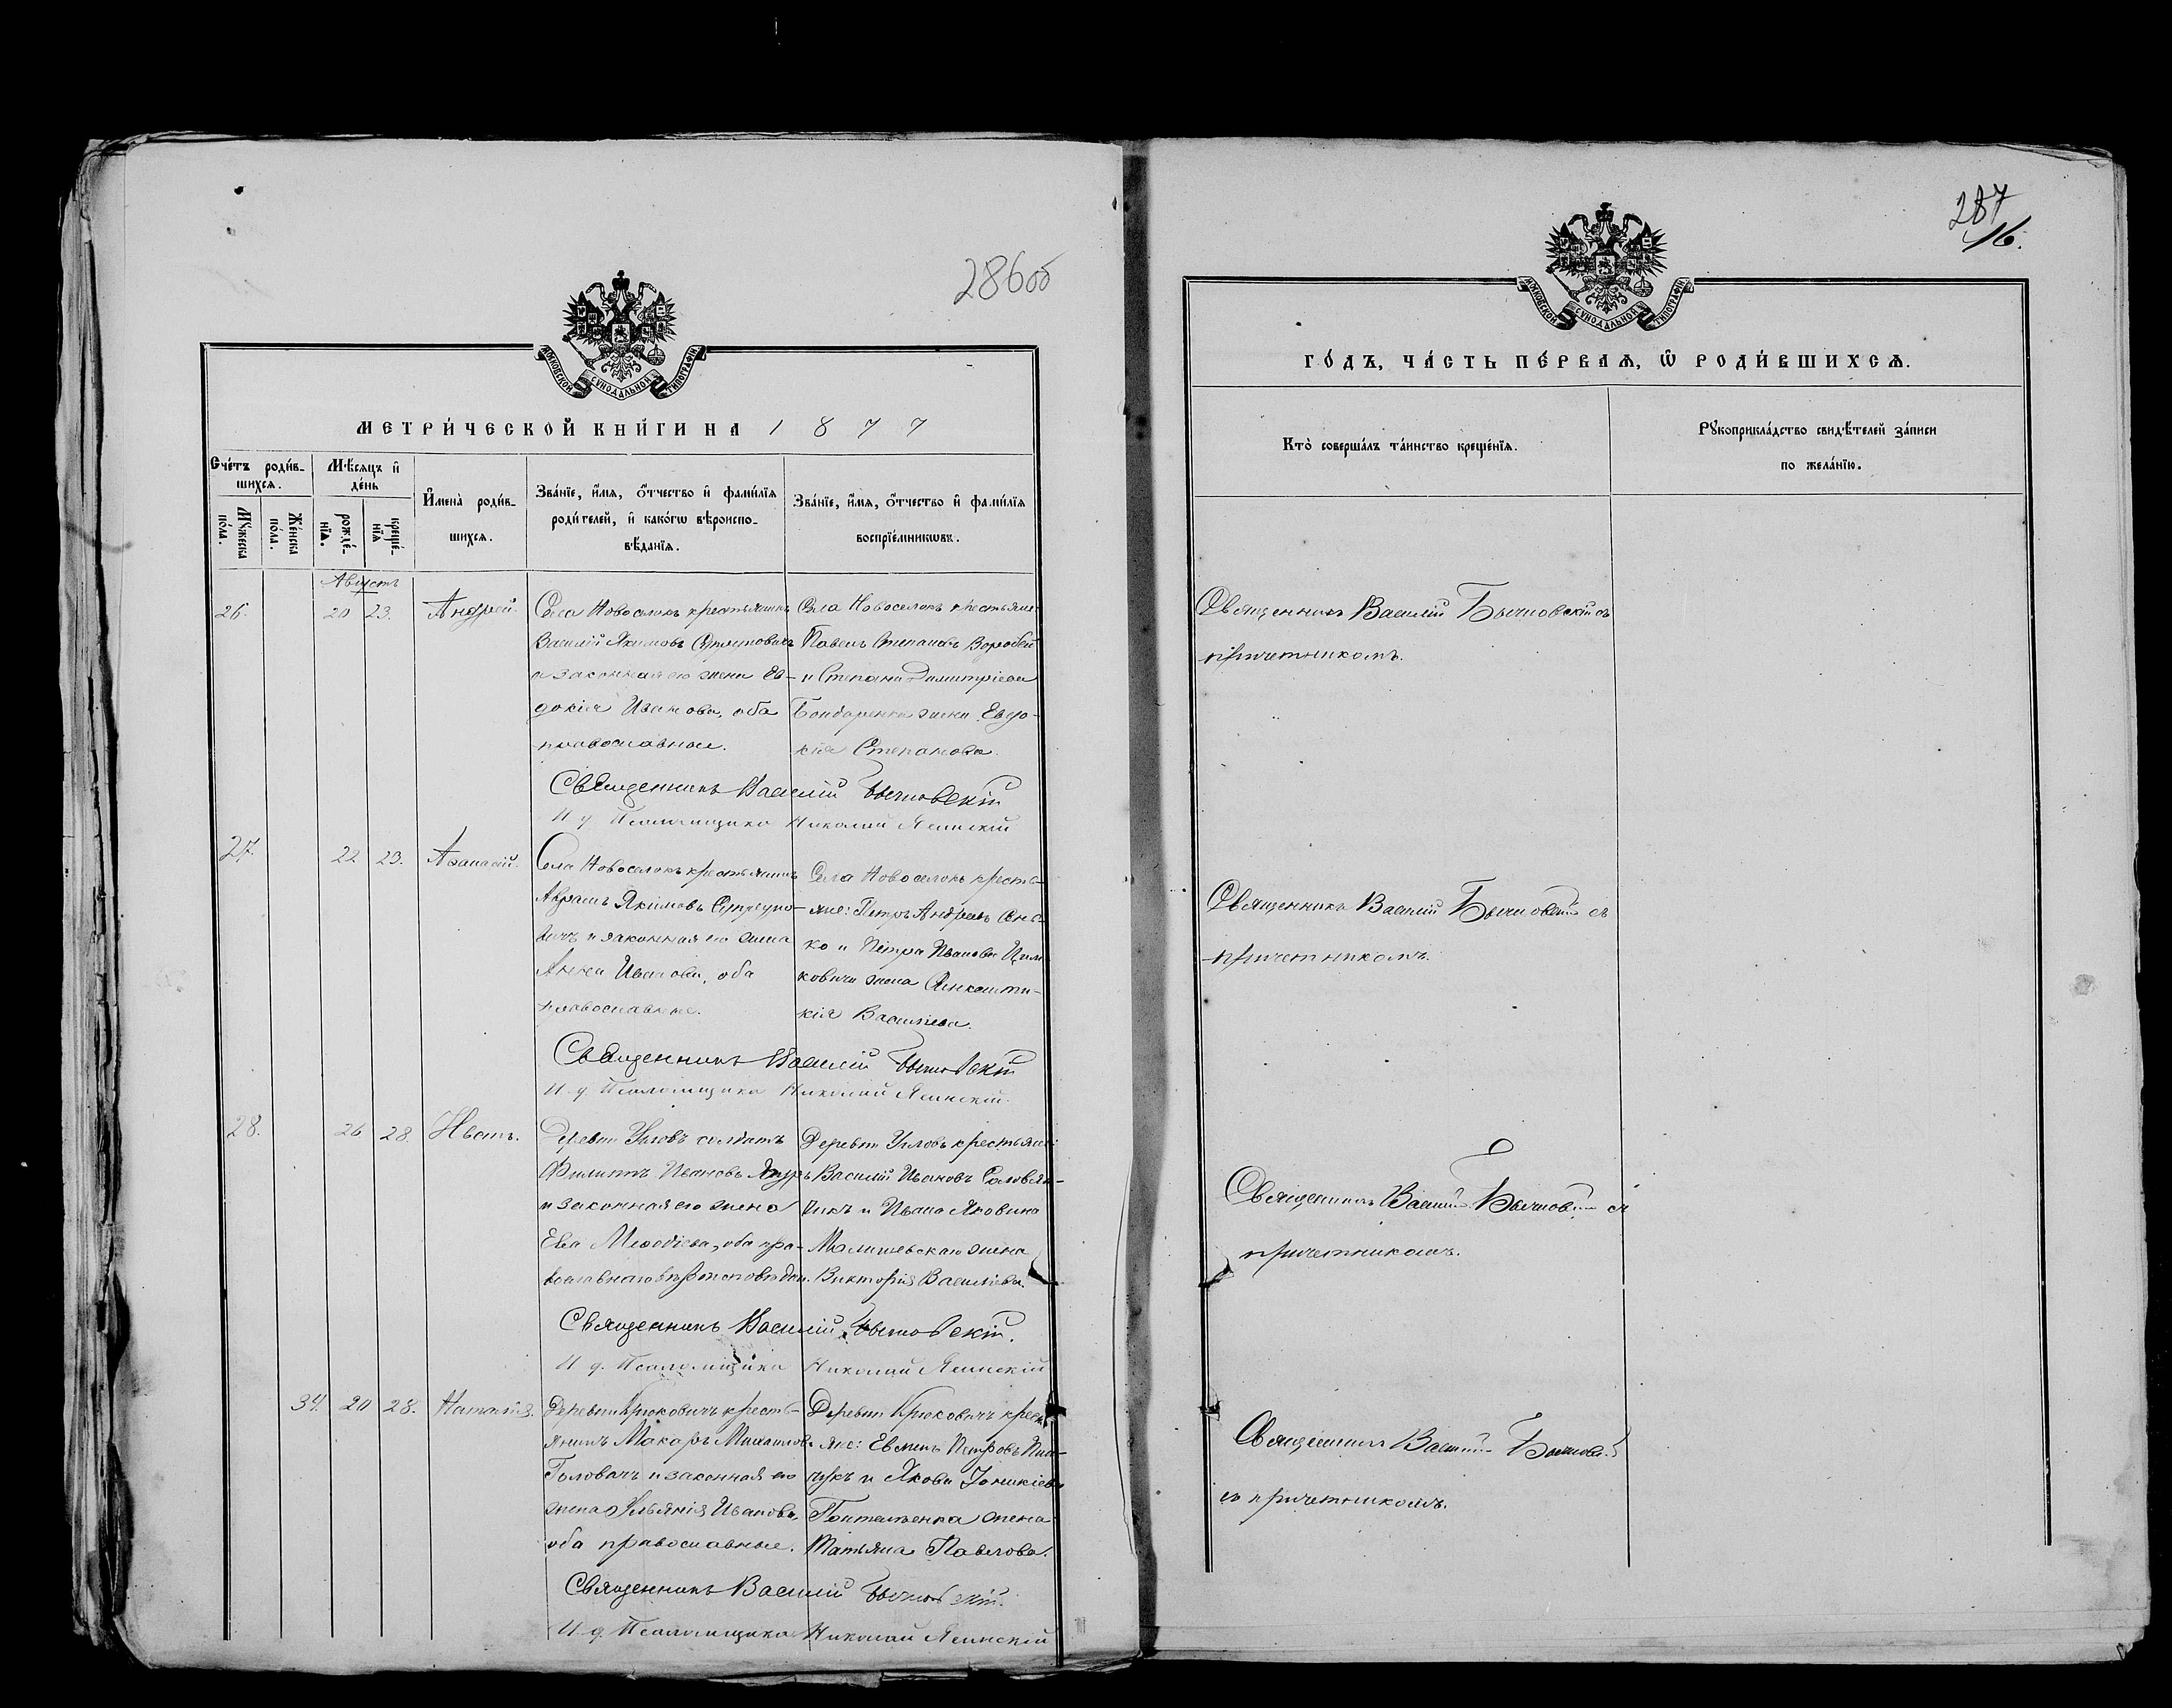 286об
МОСКОВСКОЙ СѴНОДАЛЬНОЙ ТИПОГРАФІИ
МЕТРИ́ЧЕСКОЙ КНИ́ГИ НА 1877
Сче́тъ роди́в-
шихсѧ.
Мѣ́сяцъ и҆
де́нь
И҆мена̀ роди́в-
шихсѧ.
Зва́нїе, и҆́мѧ, ѻ҆́тчество и҆ фами́лїѧ
роди́телей, и҆ како́гѡ вѣроиспо-
вѣ́данїѧ.
Зва́нїе, и҆́мѧ, ѻ҆́тчество и҆ фами́лїѧ
воспрїе́мникѡвъ.
Мꙋ́жеска
по́ла.
Же́нска
по́ла.
рожде́-
нїѧ.
креще́-
нїѧ
Августъ
26. 20 23. Андрей.
Села Новоселокъ крестьянинъ
Василій Якимовъ
и законная его жена Ев-
докія Иванова, оба
православные.
Села Новоселокъ крестьяне:
Павелъ Степановъ Воробей
и Степана Димитріева
Бондаренка жена Евдо-
кія Степанова.
Священникъ Василій Бычковскій
И. д. Псаломщика Николай Ясинскій
27. 22 23. Аѳанасій.
Села Новоселокъ крестьянинъ
Авраамъ Якимовъ
и законная его жена
Анна Иванова, оба
православные.
Села Новоселокъ кресть-
яне: Петръ Андреевъ
ко и Петра Иванова
ковича жена Синклити-
кія Васильева.
Священникъ Василій Бычковскій
И. д. Псаломщика Николай Ясинскій.
28. 26 28. Иванъ.
Деревни Угловъ солдатъ
Филиппъ Ивановъ
и законная его жена
Ева Меѳодіева, оба пра-
вославнаго вѣроисповѣдан.
Деревни Угловъ крестьяне:
Василій Ивановъ Соловьян-
чикъ и Ивана Яковина
Малишевскаго жена
Викторія Васильева.
Священникъ Василій Бычковскій.
И. д. Псаломщика Николай Ясинскій
34. 20 28. Наталія.
Деревни Крюковичъ кресть-
янинъ Макаръ Михаиловъ
Головачъ и законная его
жена Ульянія Иванова,
оба православные.
Деревни Крюковичъ кресть-
яне: Евменъ Петровъ Пин-
чукъ и Якова Іоникіева
жена
Татьяна Павлова.
Священникъ Василій Бычковскій.
И. д. Псаломщика Николай Ясинскій
287
16.
МОСКОВСКОЙ СѴНОДАЛЬНОЙ ТИПОГРАФІИ
ГО́ДЪ, ЧА́СТЬ ПЕ́РВАѦ, Ѡ҆ РОДИ́ВШИХСѦ.
Кто̀ соверша́лъ та́инство креще́нїѧ.
Рꙋкоприкла́дство свидѣ́телей за́писи
по жела́нїю.
Священникъ Василій Бычковскій съ
причетникомъ.
Священникъ Василій Бычковскій съ
причетникомъ.
Священникъ Василій Бычковскій съ
причетникомъ.
Священникъ Василій Бычковскій
съ причетникомъ.